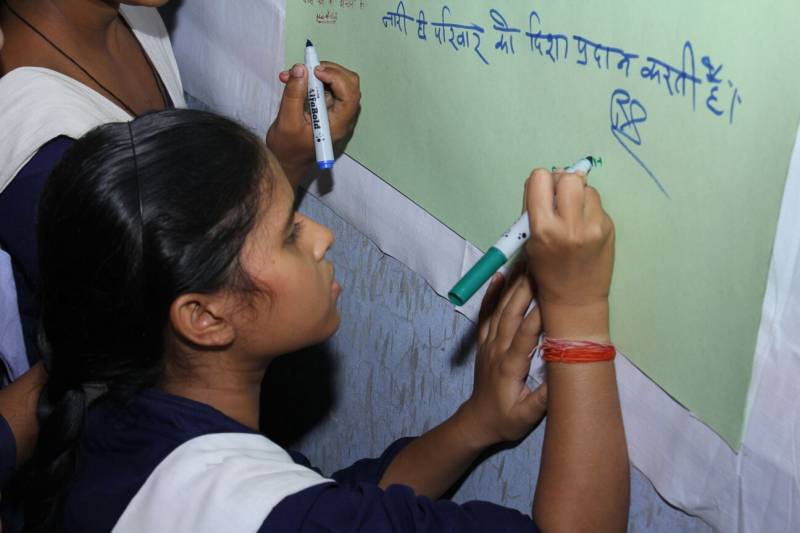 नारी ही परिवार को दिशा प्रदान करती है।
AlfaBold